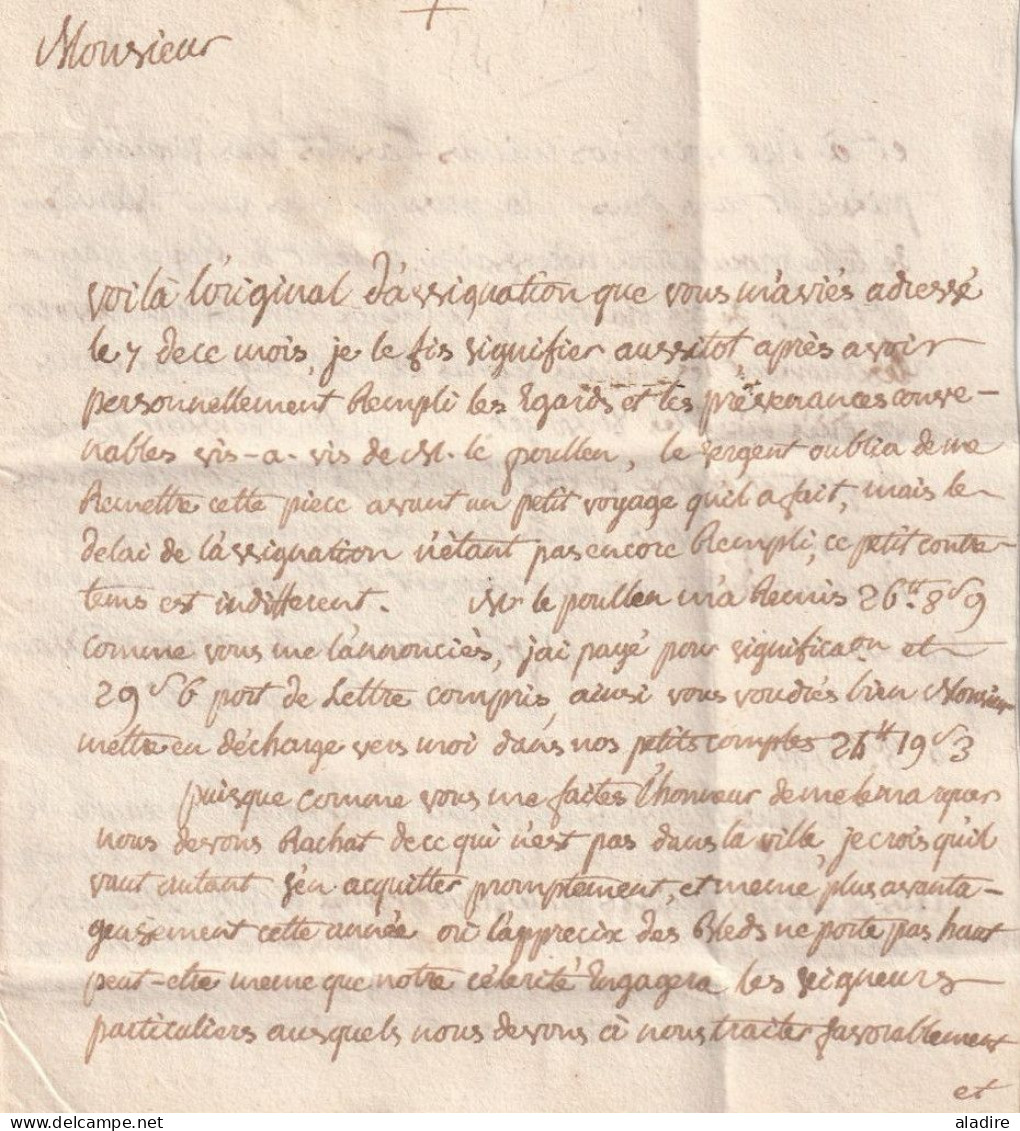 +
Monsieur
voilà l'original d'assignation que vous m'aviés adressé
le 7 de ce mois, je le fis signifier aussitot après avoir
personnellement Rempli les Egards et les prévenances conve-
nables vis-a-vis de M. le poullen, le sergent oublia de me
Remettre cette piece avant un petit voyage qu'il a fait, mais le
delai de l'assignation n'étant pas encore Rempli, ce petit contre
tems est indifferent. Mr le poullen m'a Remis 26tt 8s 9
comme vous me l'annonciés, j'ai payé pour significaon et
29s 6 port de Lettre compris, ainsi vous voudrés bien Monsieur
mettre en décharge vers moi dans nos petits comptes 24tt 19s 3
puisque comme vous me faites l'honneur de me le marquer
nous devons Rachat de ce qui n'est pas dans la ville, je crois qu'il
vaut autant s'en acquitter promptement, et meme plus avanta-
geusement cette année où l'apprecix des Bleds ne porte pas haut
peut-etre meme que notre célérité Engagera les seigneurs
particuliers ausquels nous devons à nous traiter favorablement
et
www.delcampe.net
aladire